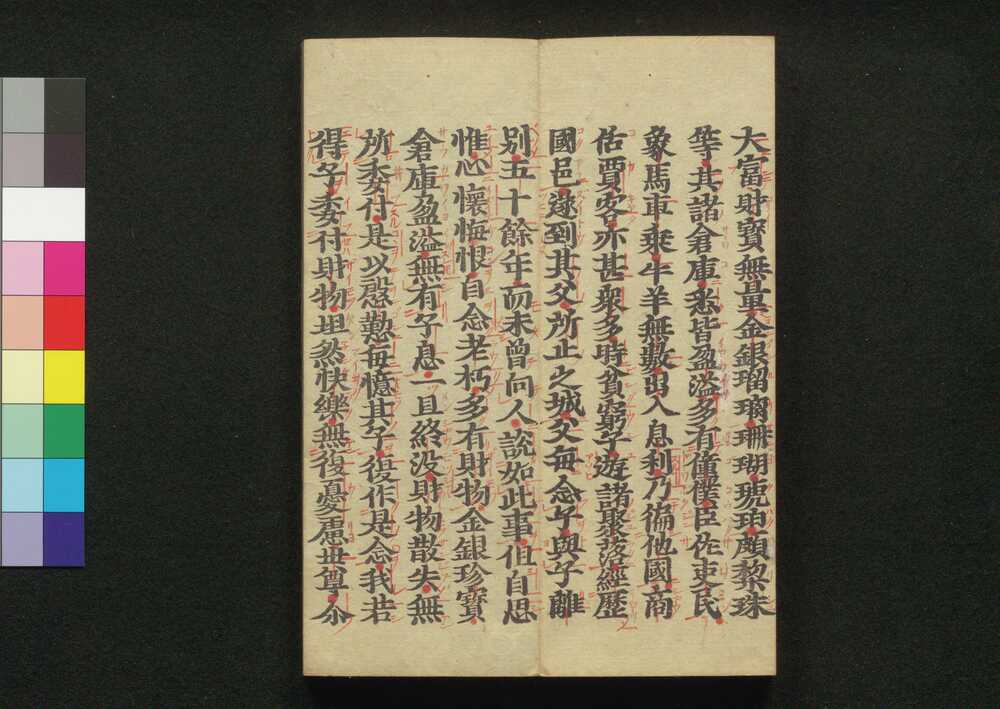 大冨財寶無量金銀瑠璃珊瑚琥珀頗棃珠
等其諸倉庫悉皆盈溢多有僮僕臣佐吏民
象馬車乗牛羊無數出入息利乃徧他國商
估賈客亦甚衆多時貧窮子遊諸聚落經歷
國邑遂到其父所止之城父毎念子與子離
别五十餘年而未曾向人説如此事但自思
惟心懷悔恨自念老朽多有財物金銀珍寳
倉庫盈溢無有子息一旦終没財物散失無
所委付是以慇懃毎憶其子復作是念我若
得子委付財物坦然快樂無復憂慮世尊尒